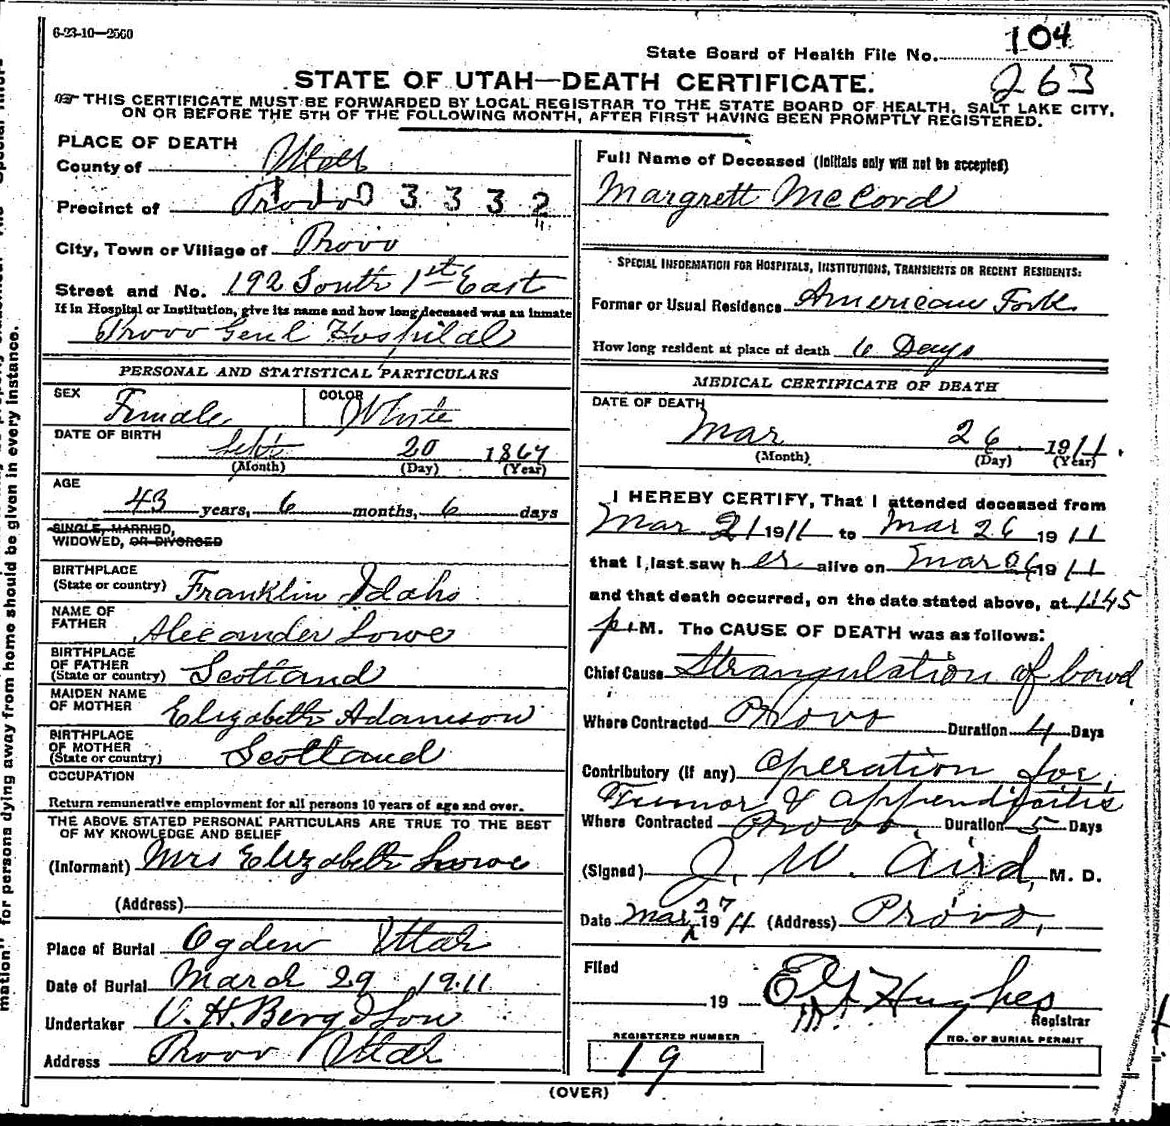 6-23-10—2560
State Board of Health File No. 104
263
STATE OF UTAH—DEATH CERTIFICATE.
THIS CERTIFICATE MUST BE FORWARDED BY LOCAL REGISTRAR TO THE STATE BOARD OF HEALTH, SALT LAKE CITY,
ON OR BEFORE THE 5TH OF THE FOLLOWING MONTH, AFTER FIRST HAVING BEEN PROMPTLY REGISTERED.
PLACE OF DEATH
County of Utah
Precinct of Provo 1103332
City, Town or Village of Provo
Street and No. 192 South 1st East
If in Hospital or Institution, give its name and how long deceased was an inmate
Provo Genl Hospital
PERSONAL AND STATISTICAL PARTICULARS
SEX Female COLOR White
DATE OF BIRTH Sept 20 1867
(Month) (Day) (Year)
AGE 43 years, 6 months, 6 days
SINGLE, MARRIED,
WIDOWED, OR DIVORCED
BIRTHPLACE
(State or country) Franklin Idaho
NAME OF
FATHER Alecander Lowe
BIRTHPLACE
OF FATHER
(State or country) Scotland
MAIDEN NAME
OF MOTHER Elizabeth Adamson
BIRTHPLACE
OF MOTHER
(State or country) Scotland
OCCUPATION
Return remunerative employment for all persons 10 years of age and over.
THE ABOVE STATED PERSONAL PARTICULARS ARE TRUE TO THE BEST
OF MY KNOWLEDGE AND BELIEF
(Informant) Mrs Elizabeth Lowe
(Address)
Place of Burial Ogden Utah
Date of Burial March 29 1911
Undertaker O. H. Berg & Son
Address Provo Utah
Full Name of Deceased (Initials only will not be accepted)
Margrett McCord
SPECIAL INFORMATION FOR HOSPITALS, INSTITUTIONS, TRANSIENTS OR RECENT RESIDENTS:
Former or Usual Residence American Fork
How long resident at place of death 6 Days
MEDICAL CERTIFICATE OF DEATH
DATE OF DEATH
Mar 26 1911.
(Month) (Day) (Year)
I HEREBY CERTIFY, That I attended deceased from
Mar 21 1911 to Mar 26 1911
that I last saw her alive on Mar 26 1911
and that death occurred, on the date stated above, at 1145
p. M. The CAUSE OF DEATH was as follows:
Chief Cause Strangulation of bowel
Where Contracted Provo Duration 4 Days
Contributory (if any) Operation for
Tumor & appendicitis
Where Contracted Provo. Duration 5 Days
(Signed) J. W. Aird, M. D.
Date Mar 27 1911 (Address) Provo,
Filed
19 Hughes
Registrar
REGISTERED NUMBER
19
NO. OF BURIAL PERMIT
(OVER)
for persons dying away from home should be given in every instance.